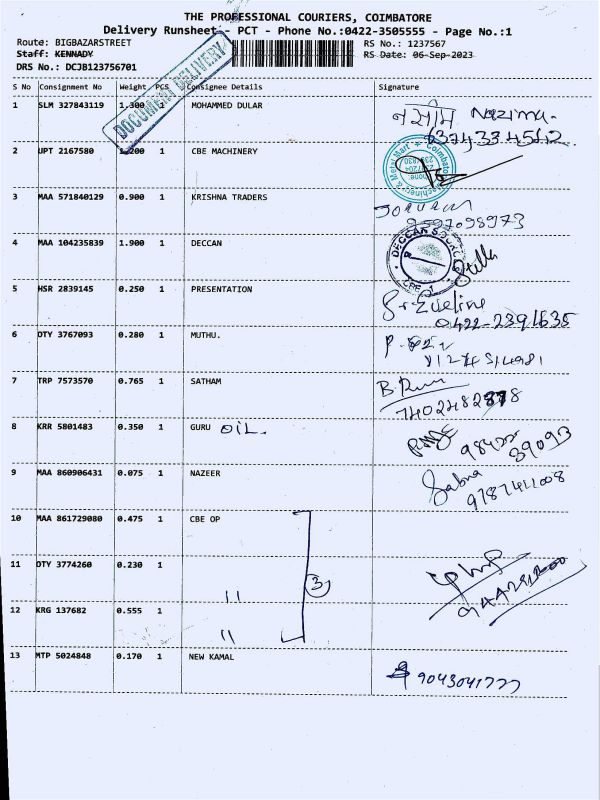 THE PROFESSIONAL COURIERS, COIMBATORE
Delivery Runsheet - PCT - Phone No.:0422-3505555 - Page No.:1
Route: BIGBAZARSTREET RS No.: 1237567
Staff: KENNADY RS Date: 06-Sep-2023
DRS No.: DCJB123756701
DOCUMENT DELIVERY
S No Consignment No Weight PCS Consignee Details Signature
1 SLM 327843119 1.300 1 MOHAMMED DULAR
Nazima
6374334562
2 UPT 2167580 1.200 1 CBE MACHINERY
3 MAA 571840129 0.900 1 KRISHNA TRADERS
4 MAA 104235839 1.900 1 DECCAN
Stella
5 HSR 2839145 0.250 1 PRESENTATION
Sr. Eveline
0422-2391635
6 OTY 3767093 0.280 1 MUTHU.
7 TRP 7573570 0.765 1 SATHAM
7402482878
8 KRR 5801483 0.350 1 GURU OIL.
98422
39093
9 MAA 860906431 0.075 1 NAZEER
Sabna
9787411008
10 MAA 861729080 0.475 1 CBE OP
11 OTY 3774260 0.230 1 "
3
12 KRG 137682 0.555 1 "
13 MTP 5024848 0.170 1 NEW KAMAL
9043041777